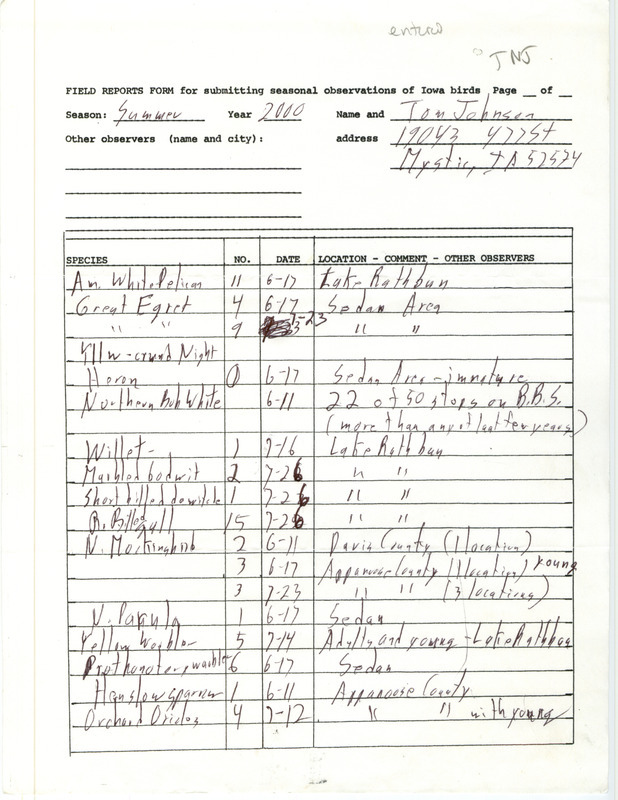 entered
JNJ
FIELD REPORTS FORM for submitting seasonal observations of Iowa birds Page __ of __
Season: Summer Year 2000 Name and Tom Johnson
Other observers (name and city): address 19043 477St
Mystic, IA 52574
SPECIES NO. DATE LOCATION - COMMENT - OTHER OBSERVERS
Am. White Pelican 11 6-17 Lake Rathbun
Great Egret 4 6-17 Sedan Area
" " 9 7-23 " "
Yllw-crwnd Night
Heron 1 6-17 Sedan Area - immature
Northern Bob White 6-11 22 of 50 stops on B.B.S.
(more than any of last few years)
Willet - 1 7-16 Lake Rathbun
Marbled Godwit 2 7-26 " "
Short billed dowitcher 1 7-26 " "
R. Billed gull 15 7-26 " "
N. Mockingbird 2 6-11 Davis County (1 location)
3 6-17 Appanoose County (1 location) young
3 7-23 " " (3 locations)
N. Parula 1 6-17 Sedan
Yellow Warbler 5 7-14 Adults and young - Lake Rathbun
Prothonotary warbler 6 6-17 Sedan
Henslow sparrow 1 6-11 Appanoose County
Orchard Orioles 4 7-12 " " with young